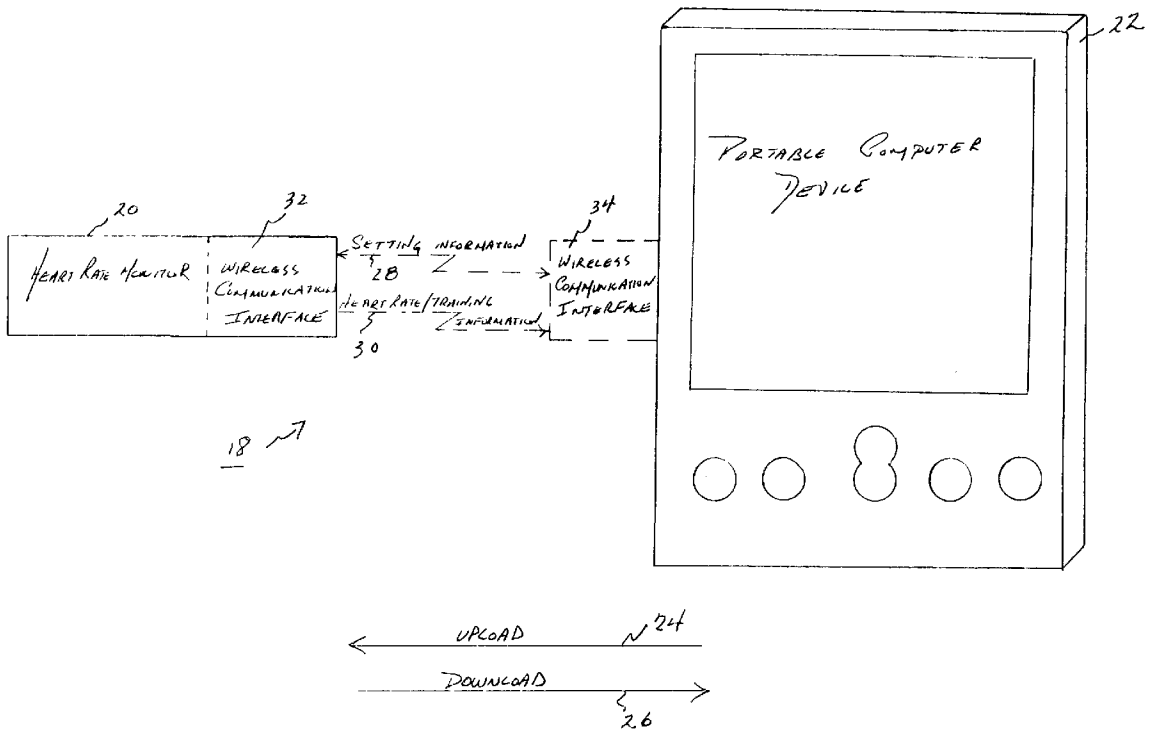 22
PORTABLE COMPUTER
DEVICE
20
32
34
HEART RATE MONITOR
WIRELESS
COMMUNICATION
INTERFACE
SETTING INFORMATION
28
HEART RATE/TRAINING
INFORMATION
30
WIRELESS
COMMUNICATION
INTERFACE
18
UPLOAD
24
DOWNLOAD
26